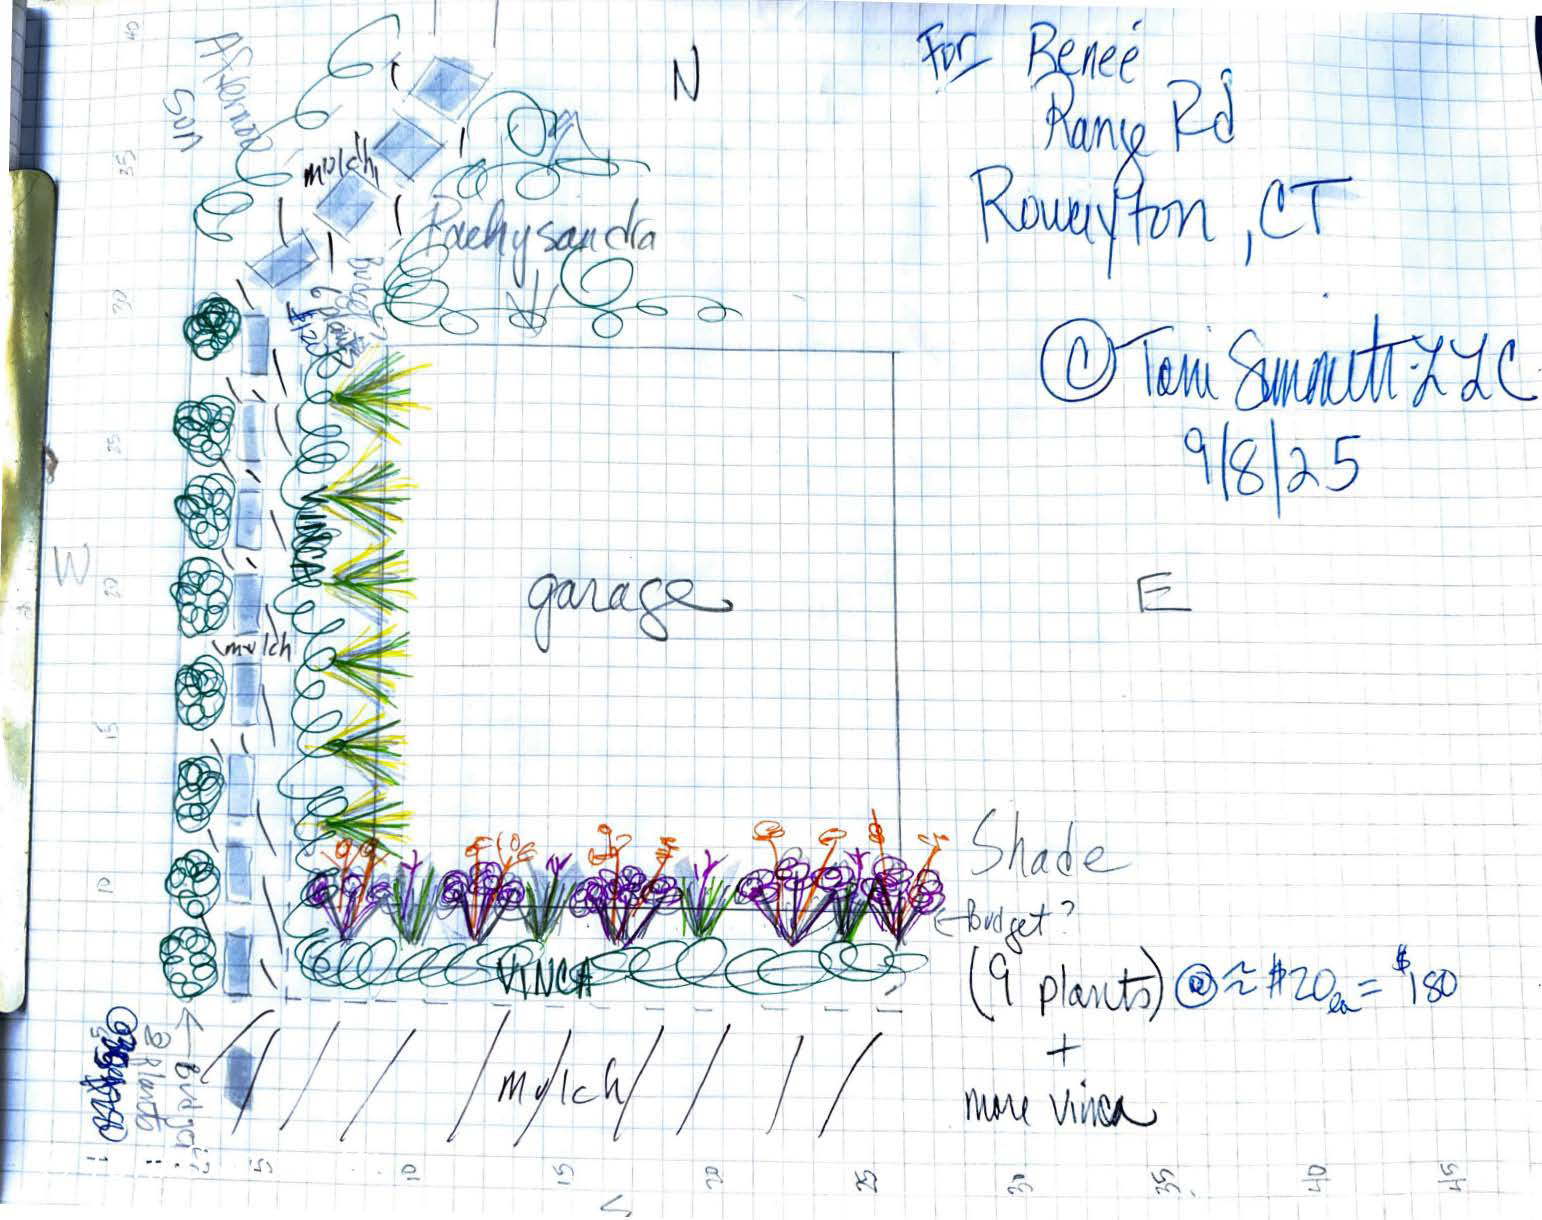 For Reneé
Range Rd
Rowayton, CT
© Toni Simmetti LLC
9/8/25
N
Afternoon
Sun
mulch
Pachysandra
Budget?
6 plants
$120
VINCA
W
garage
E
mulch
Shade
← Budget?
(9 plants) @ ≈ $20 ea = $180
+
more vinca
VINCA
mulch
← Budget?
8 plants
S
40
35
30
25
20
15
10
5
10
15
20
25
30
35
40
45